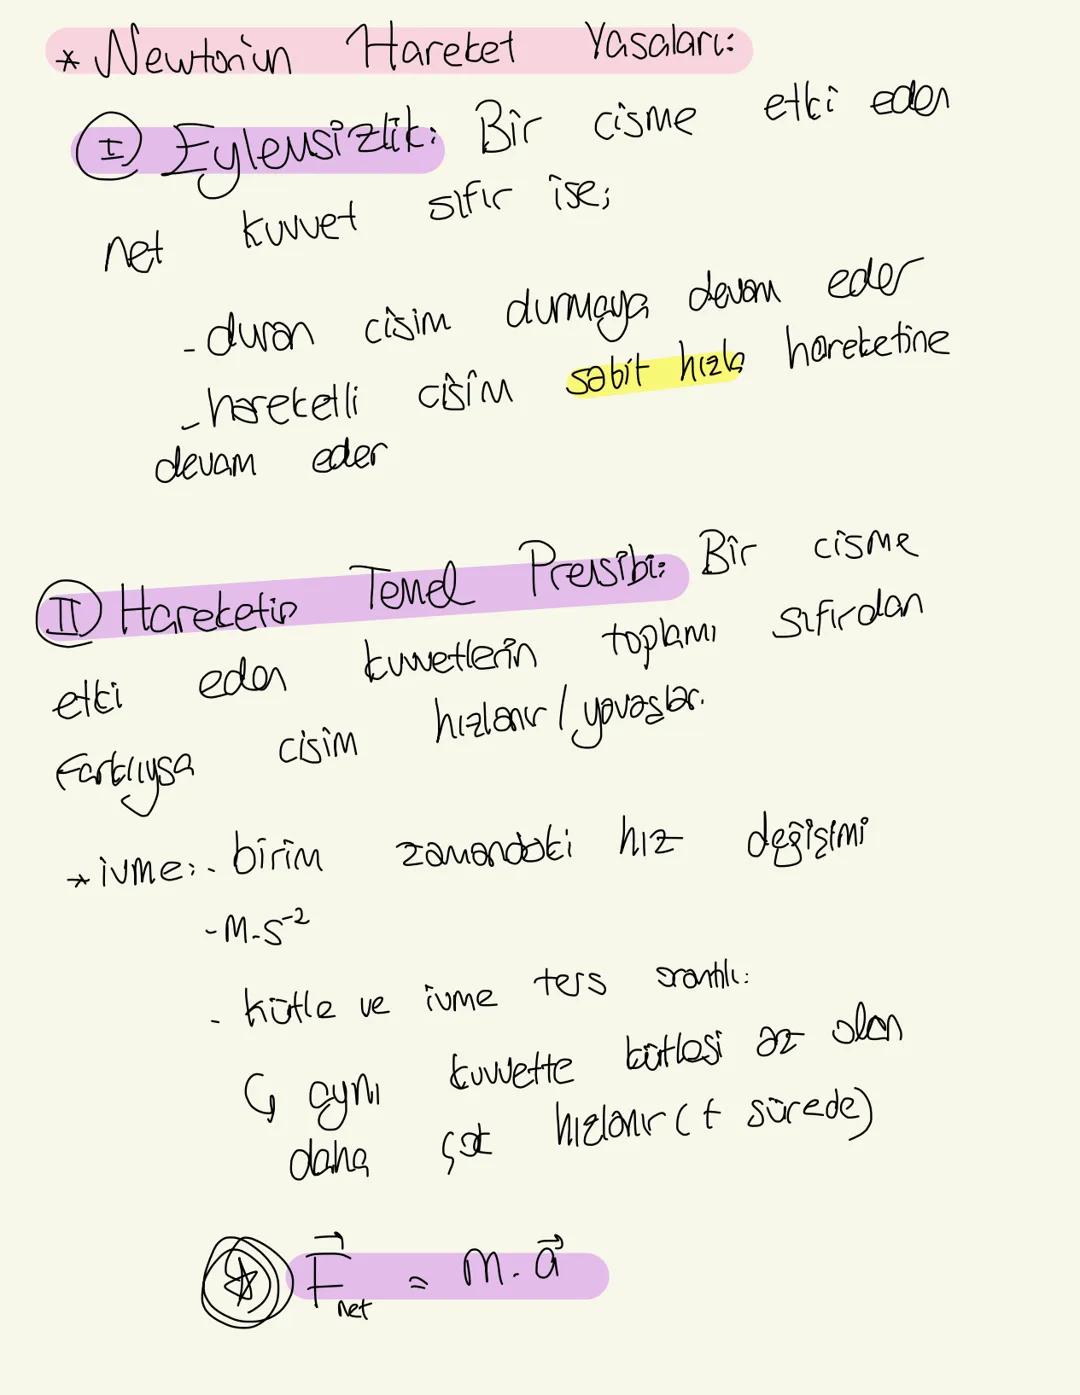 * Newton'un Hareket Yasaları:
I) Eylemsizlik: Bir cisme etki eden
net kuvvet sıfır ise;
- duran cisim durmaya devam eder
- hareketli cisim sabit hızla hareketine
devam eder
II) Hareketin Temel Prensibi: Bir cisme
etki eden kuvvetlerin toplamı sıfırdan
Farklıysa cisim hızlanır / yavaşlar.
* ivme: - birim zamandaki hız değişimi
- m.s⁻²
- kütle ve ivme ters orantılı:
↳ aynı kuvvette kütlesi az olan
daha çok hızlanır (t sürede)
F⃗net = m.a⃗